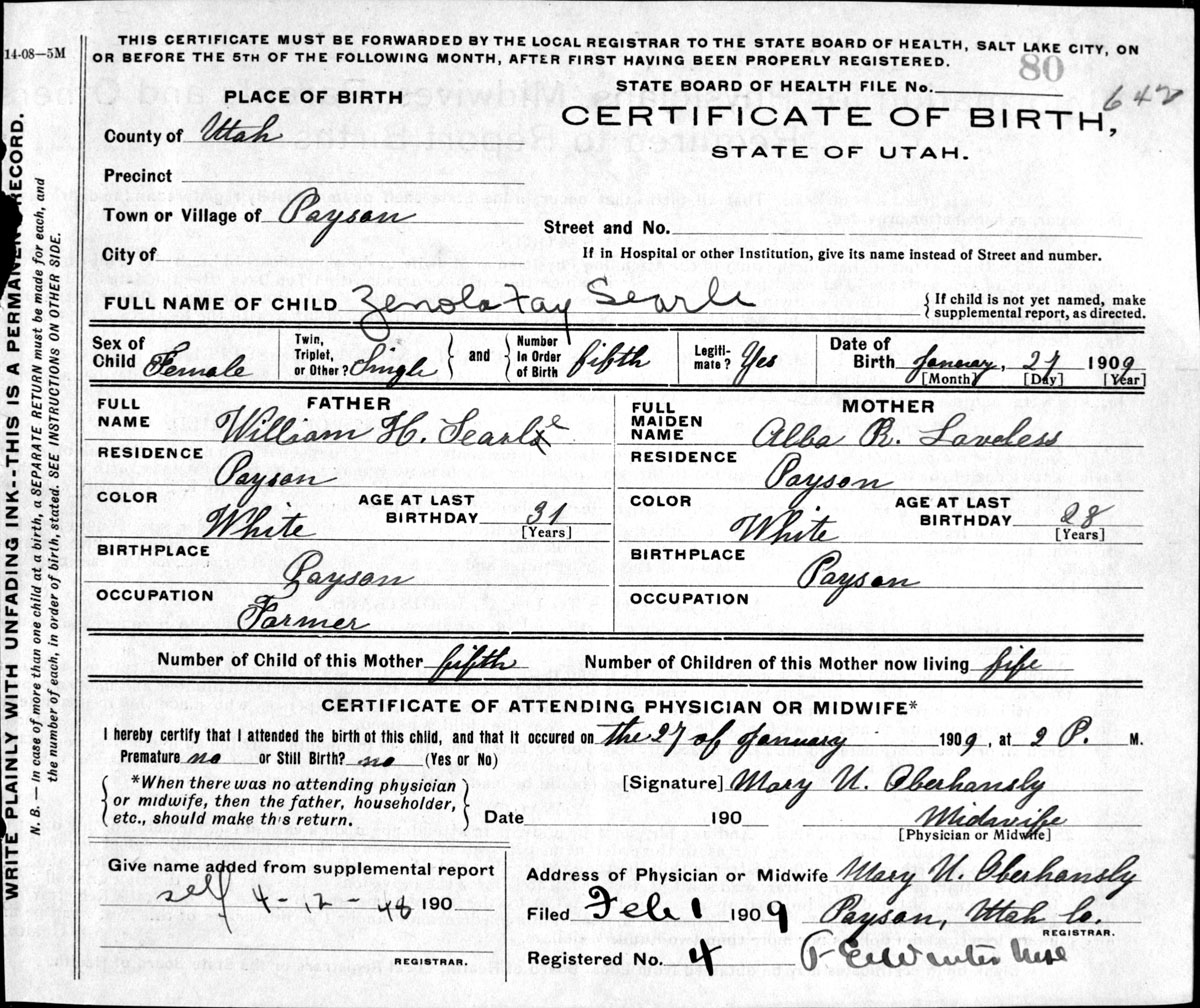 14-08—5M
THIS CERTIFICATE MUST BE FORWARDED BY THE LOCAL REGISTRAR TO THE STATE BOARD OF HEALTH, SALT LAKE CITY, ON
OR BEFORE THE 5TH OF THE FOLLOWING MONTH, AFTER FIRST HAVING BEEN PROPERLY REGISTERED.
80
STATE BOARD OF HEALTH FILE No.
642
PLACE OF BIRTH
CERTIFICATE OF BIRTH,
STATE OF UTAH.
County of Utah
Precinct
Town or Village of Payson
Street and No.
City of
If in Hospital or other Institution, give its name instead of Street and number.
FULL NAME OF CHILD Zenola Fay Searle
{ If child is not yet named, make
supplemental report, as directed.
Sex of Child Female
Twin, Triplet, or Other? Single
and
Number in Order of Birth fifth
Legitimate? Yes
Date of Birth January, 27 1909
[Month] [Day] [Year]
FATHER
FULL NAME William H. Searle
RESIDENCE
Payson
COLOR White
AGE AT LAST BIRTHDAY 31
[Years]
BIRTHPLACE
Payson
OCCUPATION
Farmer
MOTHER
FULL MAIDEN NAME Alba R. Loveless
RESIDENCE
Payson
COLOR White
AGE AT LAST BIRTHDAY 28
[Years]
BIRTHPLACE
Payson
OCCUPATION
Number of Child of this Mother fifth
Number of Children of this Mother now living fife
CERTIFICATE OF ATTENDING PHYSICIAN OR MIDWIFE*
I hereby certify that I attended the birth of this child, and that it occured on the 27 of January 1909, at 2 P. M.
Premature no or Still Birth? no (Yes or No)
*When there was no attending physician
or midwife, then the father, householder,
etc., should make this return.
[Signature] Mary U. Oberhansly
Date 190
Midwife
[Physician or Midwife]
Give name added from supplemental report
self 4-2-48 190
REGISTRAR.
Address of Physician or Midwife Mary U. Oberhansly
Filed Feb 1 1909 Payson, Utah Co.
REGISTRAR.
Registered No. 4
WRITE PLAINLY WITH UNFADING INK--THIS IS A PERMANENT RECORD.
N. B. — In case of more than one child at a birth, a SEPARATE RETURN must be made for each, and
the number of each, in order of birth, stated. SEE INSTRUCTIONS ON OTHER SIDE.